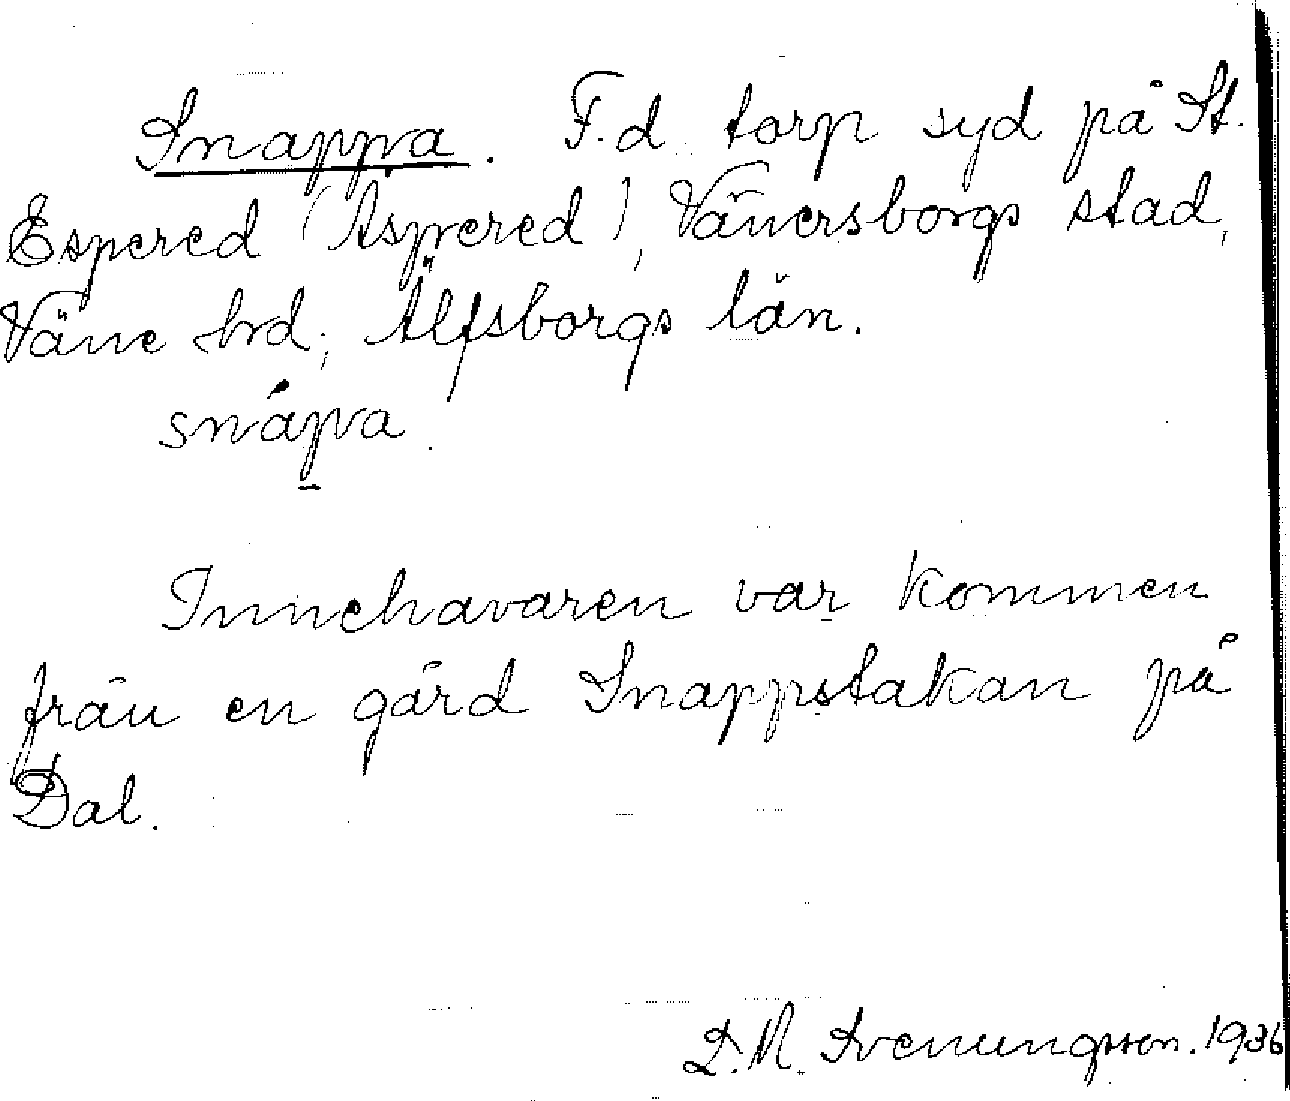 Snappa. F.d. torp syd på St.
Espered (Aspered), Vänersborgs stad,
Väne hd, Älfsborgs län.
snápa.
Innehavaren var kommen
från en gård Snappstakan på
Dal.
D. M. Svenungsson. 1936